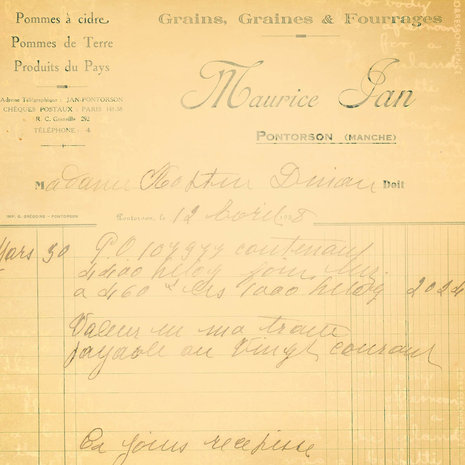 Pommes à cidre
Pommes de Terre
Produits du Pays
Grains, Graines & Fourrages
Maurice Jan
Adresse Télégraphique : JAN-PONTORSON
CHÈQUES POSTAUX : PARIS
R. C. Granville 292
TÉLÉPHONE : 4
PONTORSON (MANCHE)
Madame Dinan Doit
IMP. G. GRÉGOIRE - PONTORSON
Pontorson, le 12 Avril
Mars 30 P.O. 107977 contenant
4400 kilog foin
a 460 les 1000 kilog 2024
Valeur en ma traite
payable au Vingt courant
Ci joins recepisse